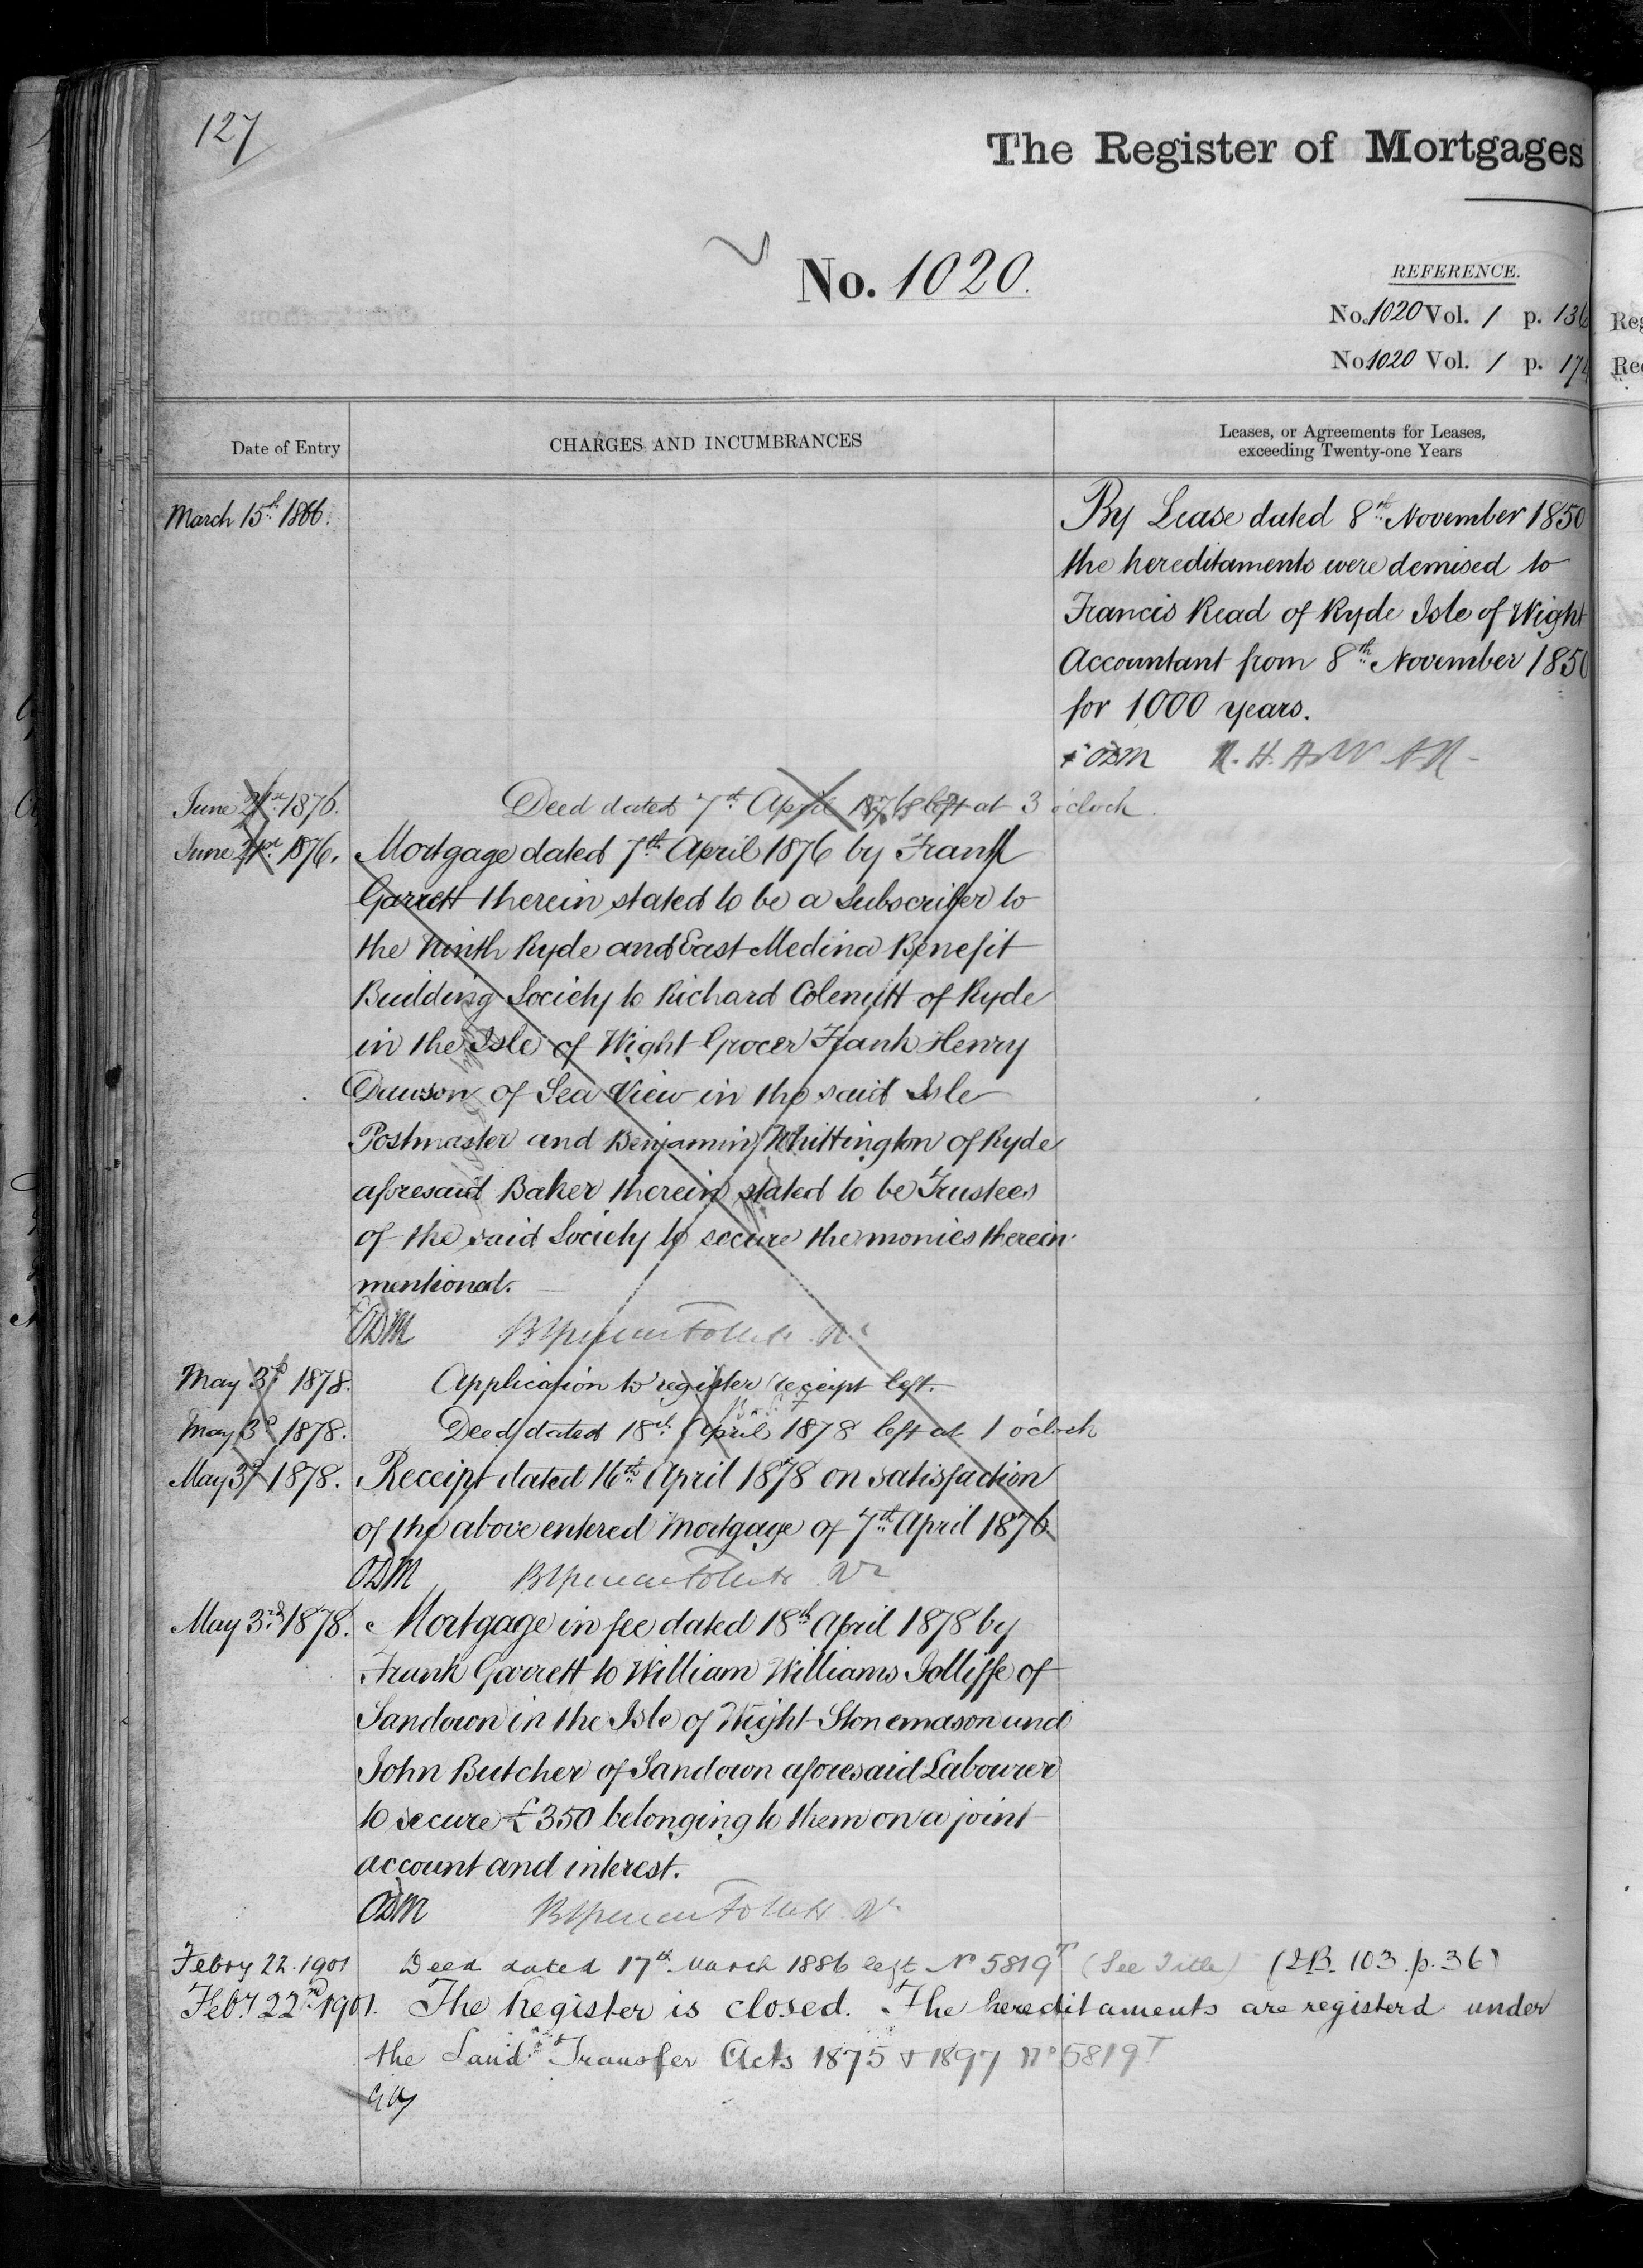 127
The Register of Mortgages
No. 1020.
REFERENCE.
No. 1020 Vol. 1 p. 136
No 1020 Vol. 1 p. 174
Date of Entry
CHARGES AND INCUMBRANCES
Leases, or Agreements for Leases,
exceeding Twenty-one Years
March 15th 1866.
By Lease dated 8th November 1850
the hereditaments were demised to
Francis Read of Ryde Isle of Wight
Accountant from 8th November 1850
for 1000 years.
ODM
June 21st 1876. Deed dated 7th April 1876 left at 3 o'clock.
June 21st 1876. Mortgage dated 7th April 1876 by Frank
Garrett therein stated to be a Subscriber to
the Ninth Ryde and East Medina Benefit
Building Society to Richard Colenutt of Ryde
in the Isle of Wight Grocer Frank Henry
Dawson of Sea View in the said Isle
Postmaster and Benjamin Whittington of Ryde
aforesaid Baker therein stated to be Trustees
of the said Society to secure the monies therein
mentioned.
ODM
May 3d 1878. Application to register receipt left.
May 3d 1878. Deed dated 18th April 1878 left at 1 o'clock
May 3d 1878. Receipt dated 16th April 1878 on satisfaction
of the above entered Mortgage of 7th April 1876
ODM
May 3rd 1878. Mortgage in fee dated 18th April 1878 by
Frank Garrett to William Williams Jolliffe of
Sandown in the Isle of Wight Stonemason and
John Butcher of Sandown aforesaid Labourer
to secure £350 belonging to them on a joint
account and interest.
ODM
Febry 22. 1901 Deed dated 17th March 1886 left No 5819T (See Title) (2B. 103. p. 36)
Feby 22nd 1901. The Register is closed. The hereditaments are registerd under
the Land Transfer Acts 1875 & 1897 No 5819T